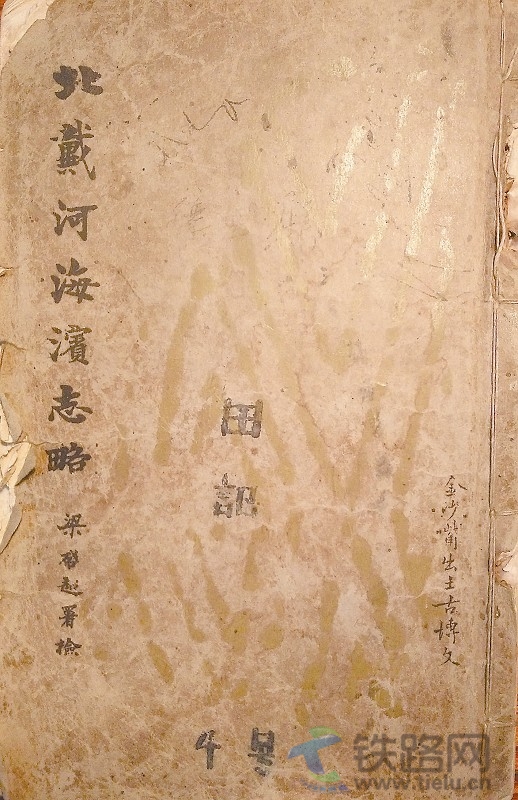 北戴河海濱志略
梁啓超署檢
田記
金沙嘴出土古塼文
铁路网
www.tielu.cn